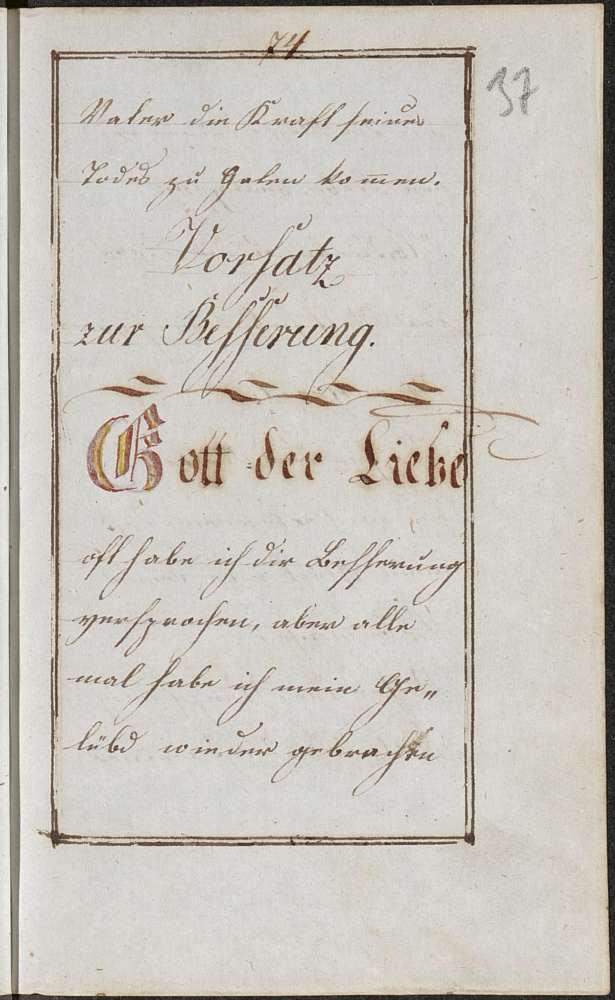 74
37
Vater die Kraft seines
Todes zu Guten kom̄en.
Vorsatz
zur Besserung.
Gott der Liebe
oft habe ich dir Besserung
versprochen, aber alle
mal habe ich mein Ge„
lübd wieder gebrochen